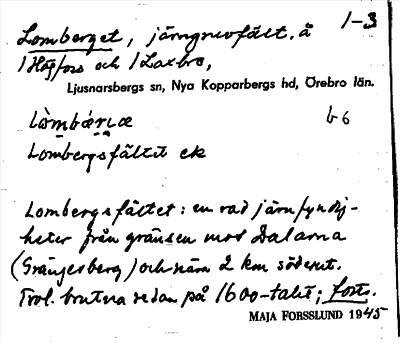 1-3
Lomberget, järngruvfält, å
1 Högfors och 1 Laxbro,
Ljusnarsbergs sn, Nya Kopparbergs hd, Örebro län.
b 6
Lombergsfältet ek
Lombergsfältet: en rad järnfyndig-
heter från gränsen mot Dalarna
(Grängesberg) och näm 2 km söderut.
Trol. brutna redan på 1600-talet; forts.
MAJA FORSSLUND 1945